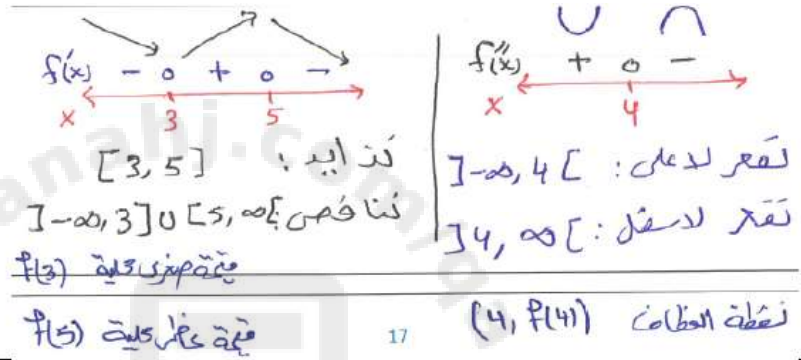 f'(x) − 0 + 0 −
x 3 5
تزايد : [3, 5]
تناقص ]−∞, 3] ∪ [5, ∞[
f(3) قيمة صغرى محلية
f(5) قيمة عظمى محلية
f''(x) + 0 −
x 4
تقعر لأعلى : ]−∞, 4[
تقعر لأسفل : ]4, ∞[
نقطة انعطاف (4, f(4))
17